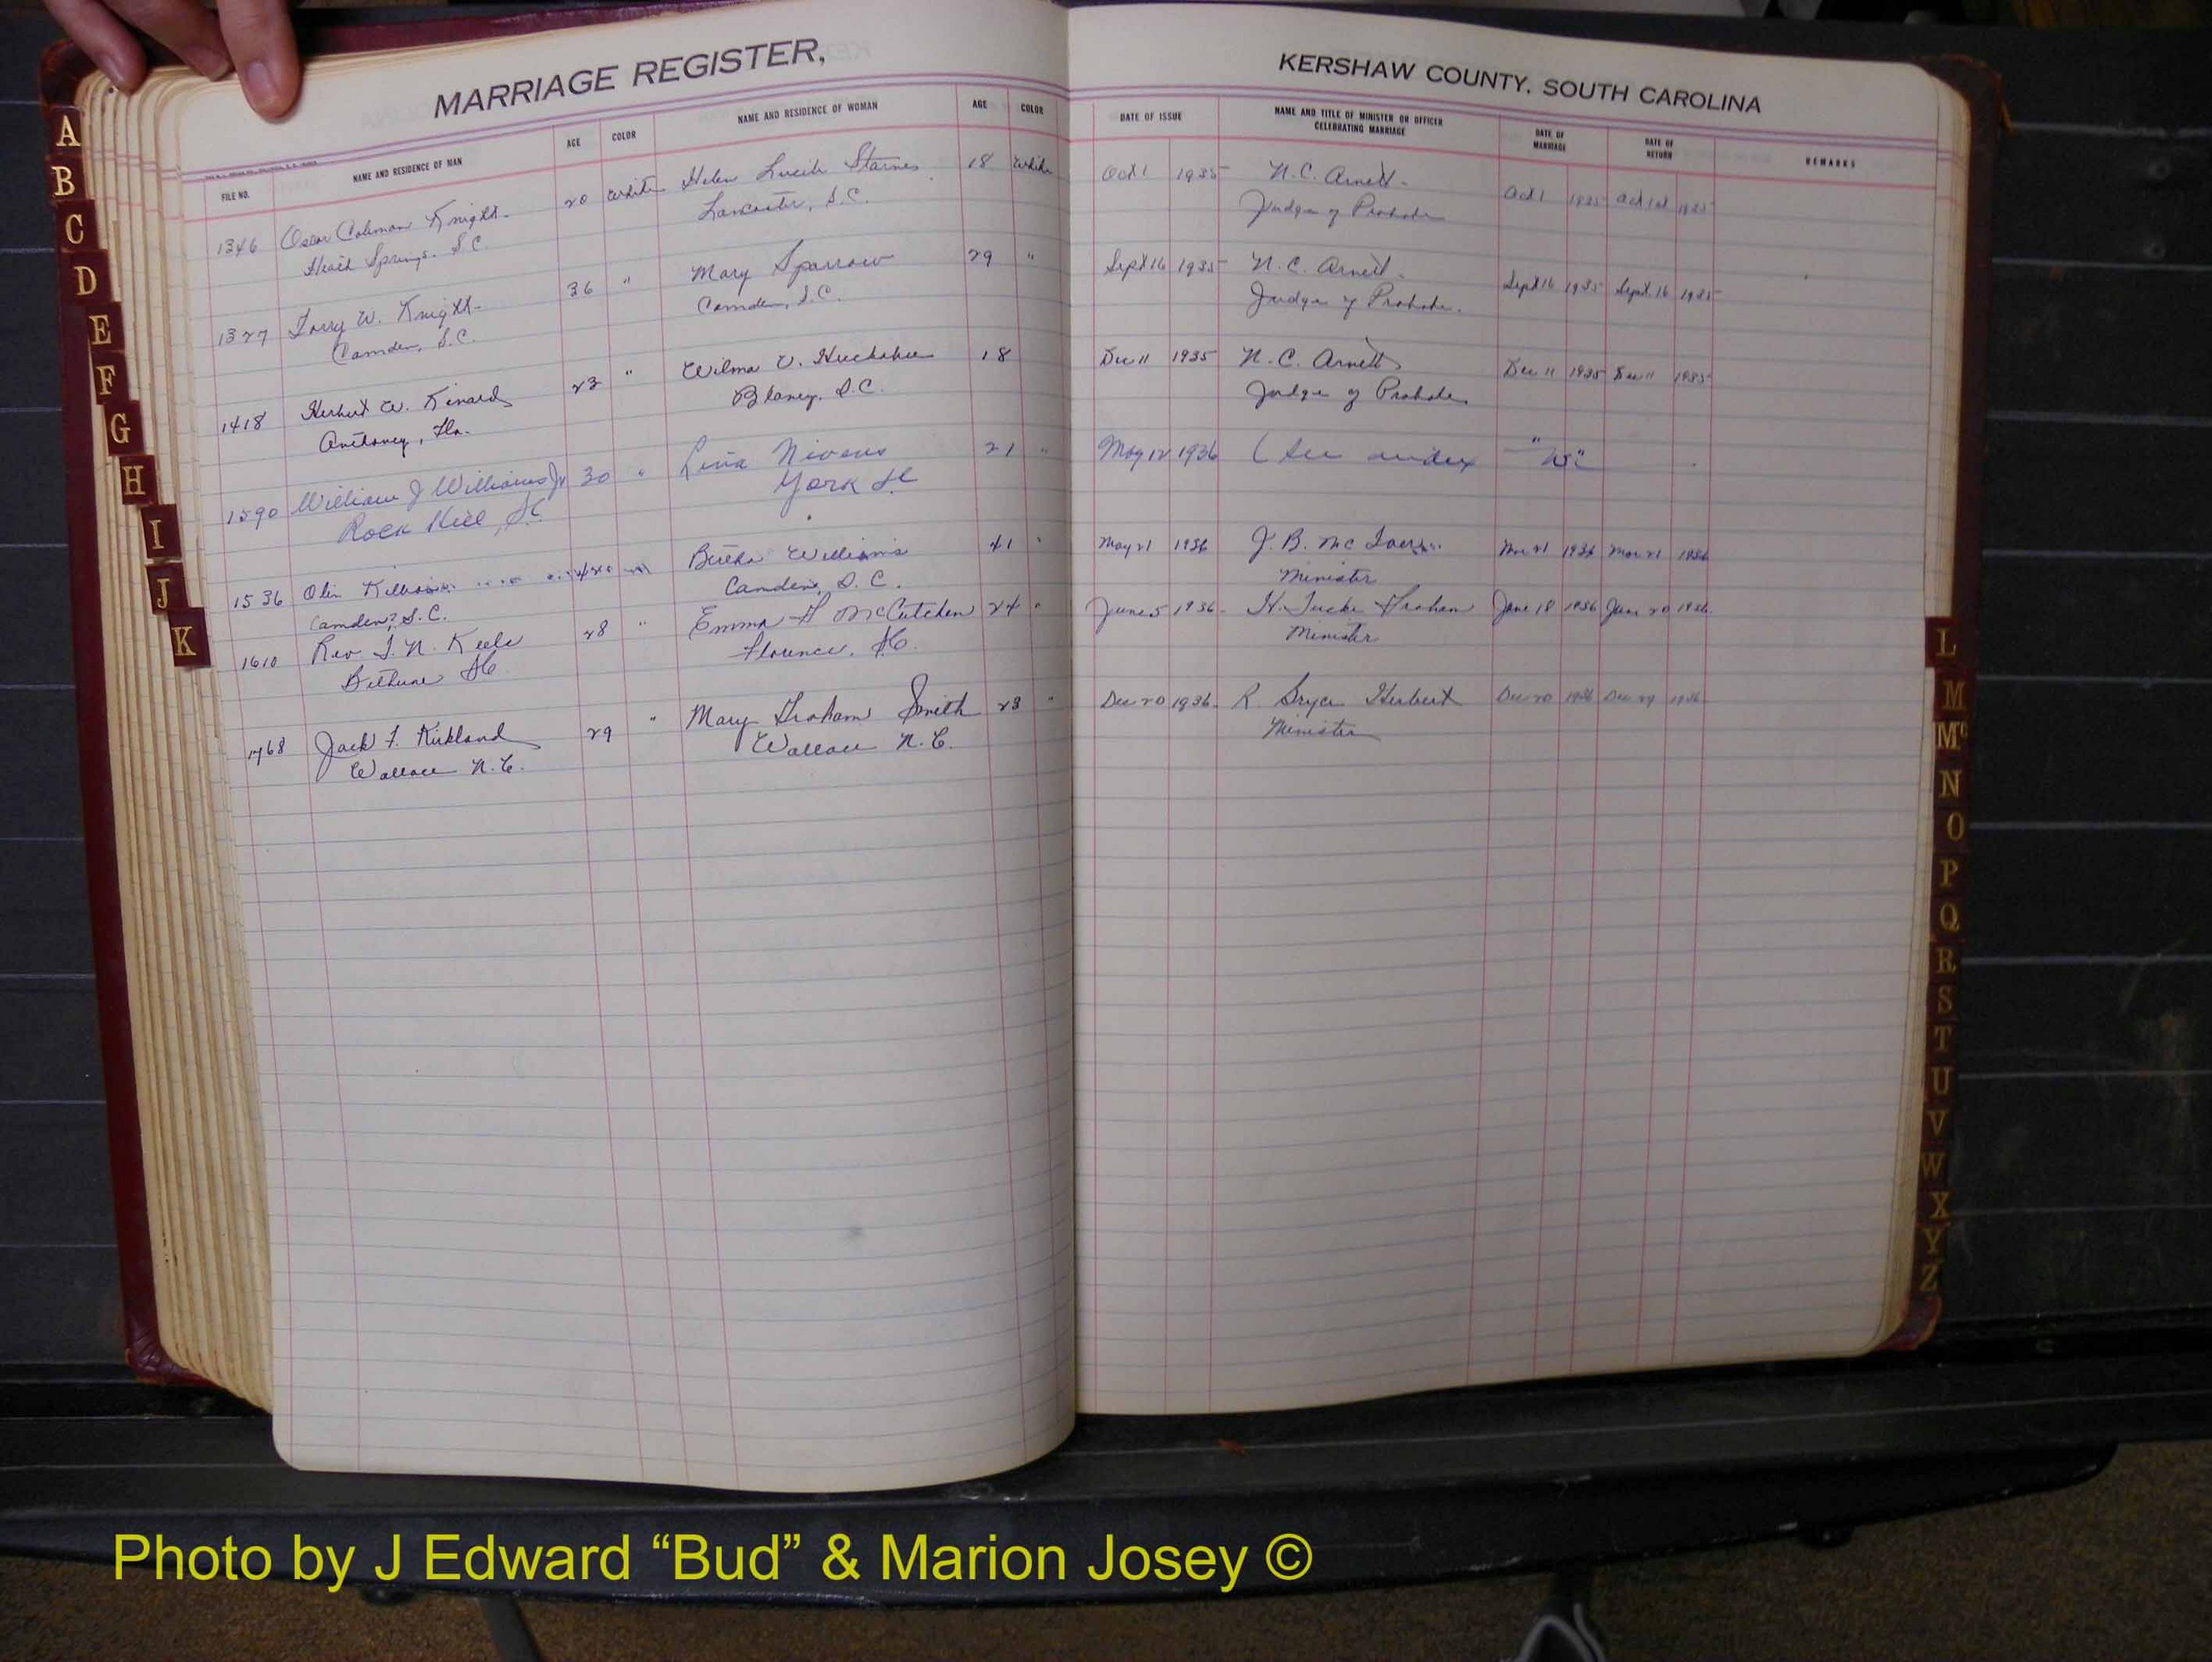 MARRIAGE REGISTER,
KERSHAW COUNTY, SOUTH CAROLINA
FILE NO. NAME AND RESIDENCE OF MAN AGE COLOR NAME AND RESIDENCE OF WOMAN AGE COLOR DATE OF ISSUE NAME AND TITLE OF MINISTER OR OFFICER CELEBRATING MARRIAGE DATE OF MARRIAGE DATE OF RETURN REMARKS
1346 Oscar Coleman Knight 20 White Helen Lucile Starnes 18 White Oct 1 1935 N.C. Arnett Oct 1 1935 Oct 1st 1935
Heath Springs, S.C. Lancaster, S.C. Judge of Probate
1327 W. Knight 36 " Mary Sparrow 29 " Sept 16 1935 N.C. Arnett Sept 16 1935 Sept 16 1935
Camden, S.C. Camden, S.C. Judge of Probate.
1418 Herbert W. Kinard 23 " Wilma V. Huckabee 18 Dec 11 1935 N.C. Arnett Dec 11 1935 Dec 11 1935
Fla. Blaney, S.C. Judge of Probate
1590 William J Williams Jr 30 " Nivens 21 " May 12 1936 (See index "W"
Rock Hill, SC York SC
1536 Olin Bertha Williams 41 " 21 1936 J.B. 21 1936 21 1936
Camden, S.C. Camden, S.C. Minister
1610 Rev J.N. Keels 28 " Emma McCutchen 24 " June 5 1936 Graham June 18 1936 June 20 1936
Bethune SC Florence, SC. Minister
1768 Jack F. Kirkland 29 " Mary Graham Smith 23 " Dec 20 1936 R. Bryce Herbert Dec 20 1936 Dec 29 1936
Wallace N.C. Wallace N.C. Minister
A
B
C
D
E
F
G
H
I
J
K
L
M
Mc
N
O
P
Q
R
S
T
U
V
W
X
Y
Z
Photo by J Edward “Bud” & Marion Josey ©